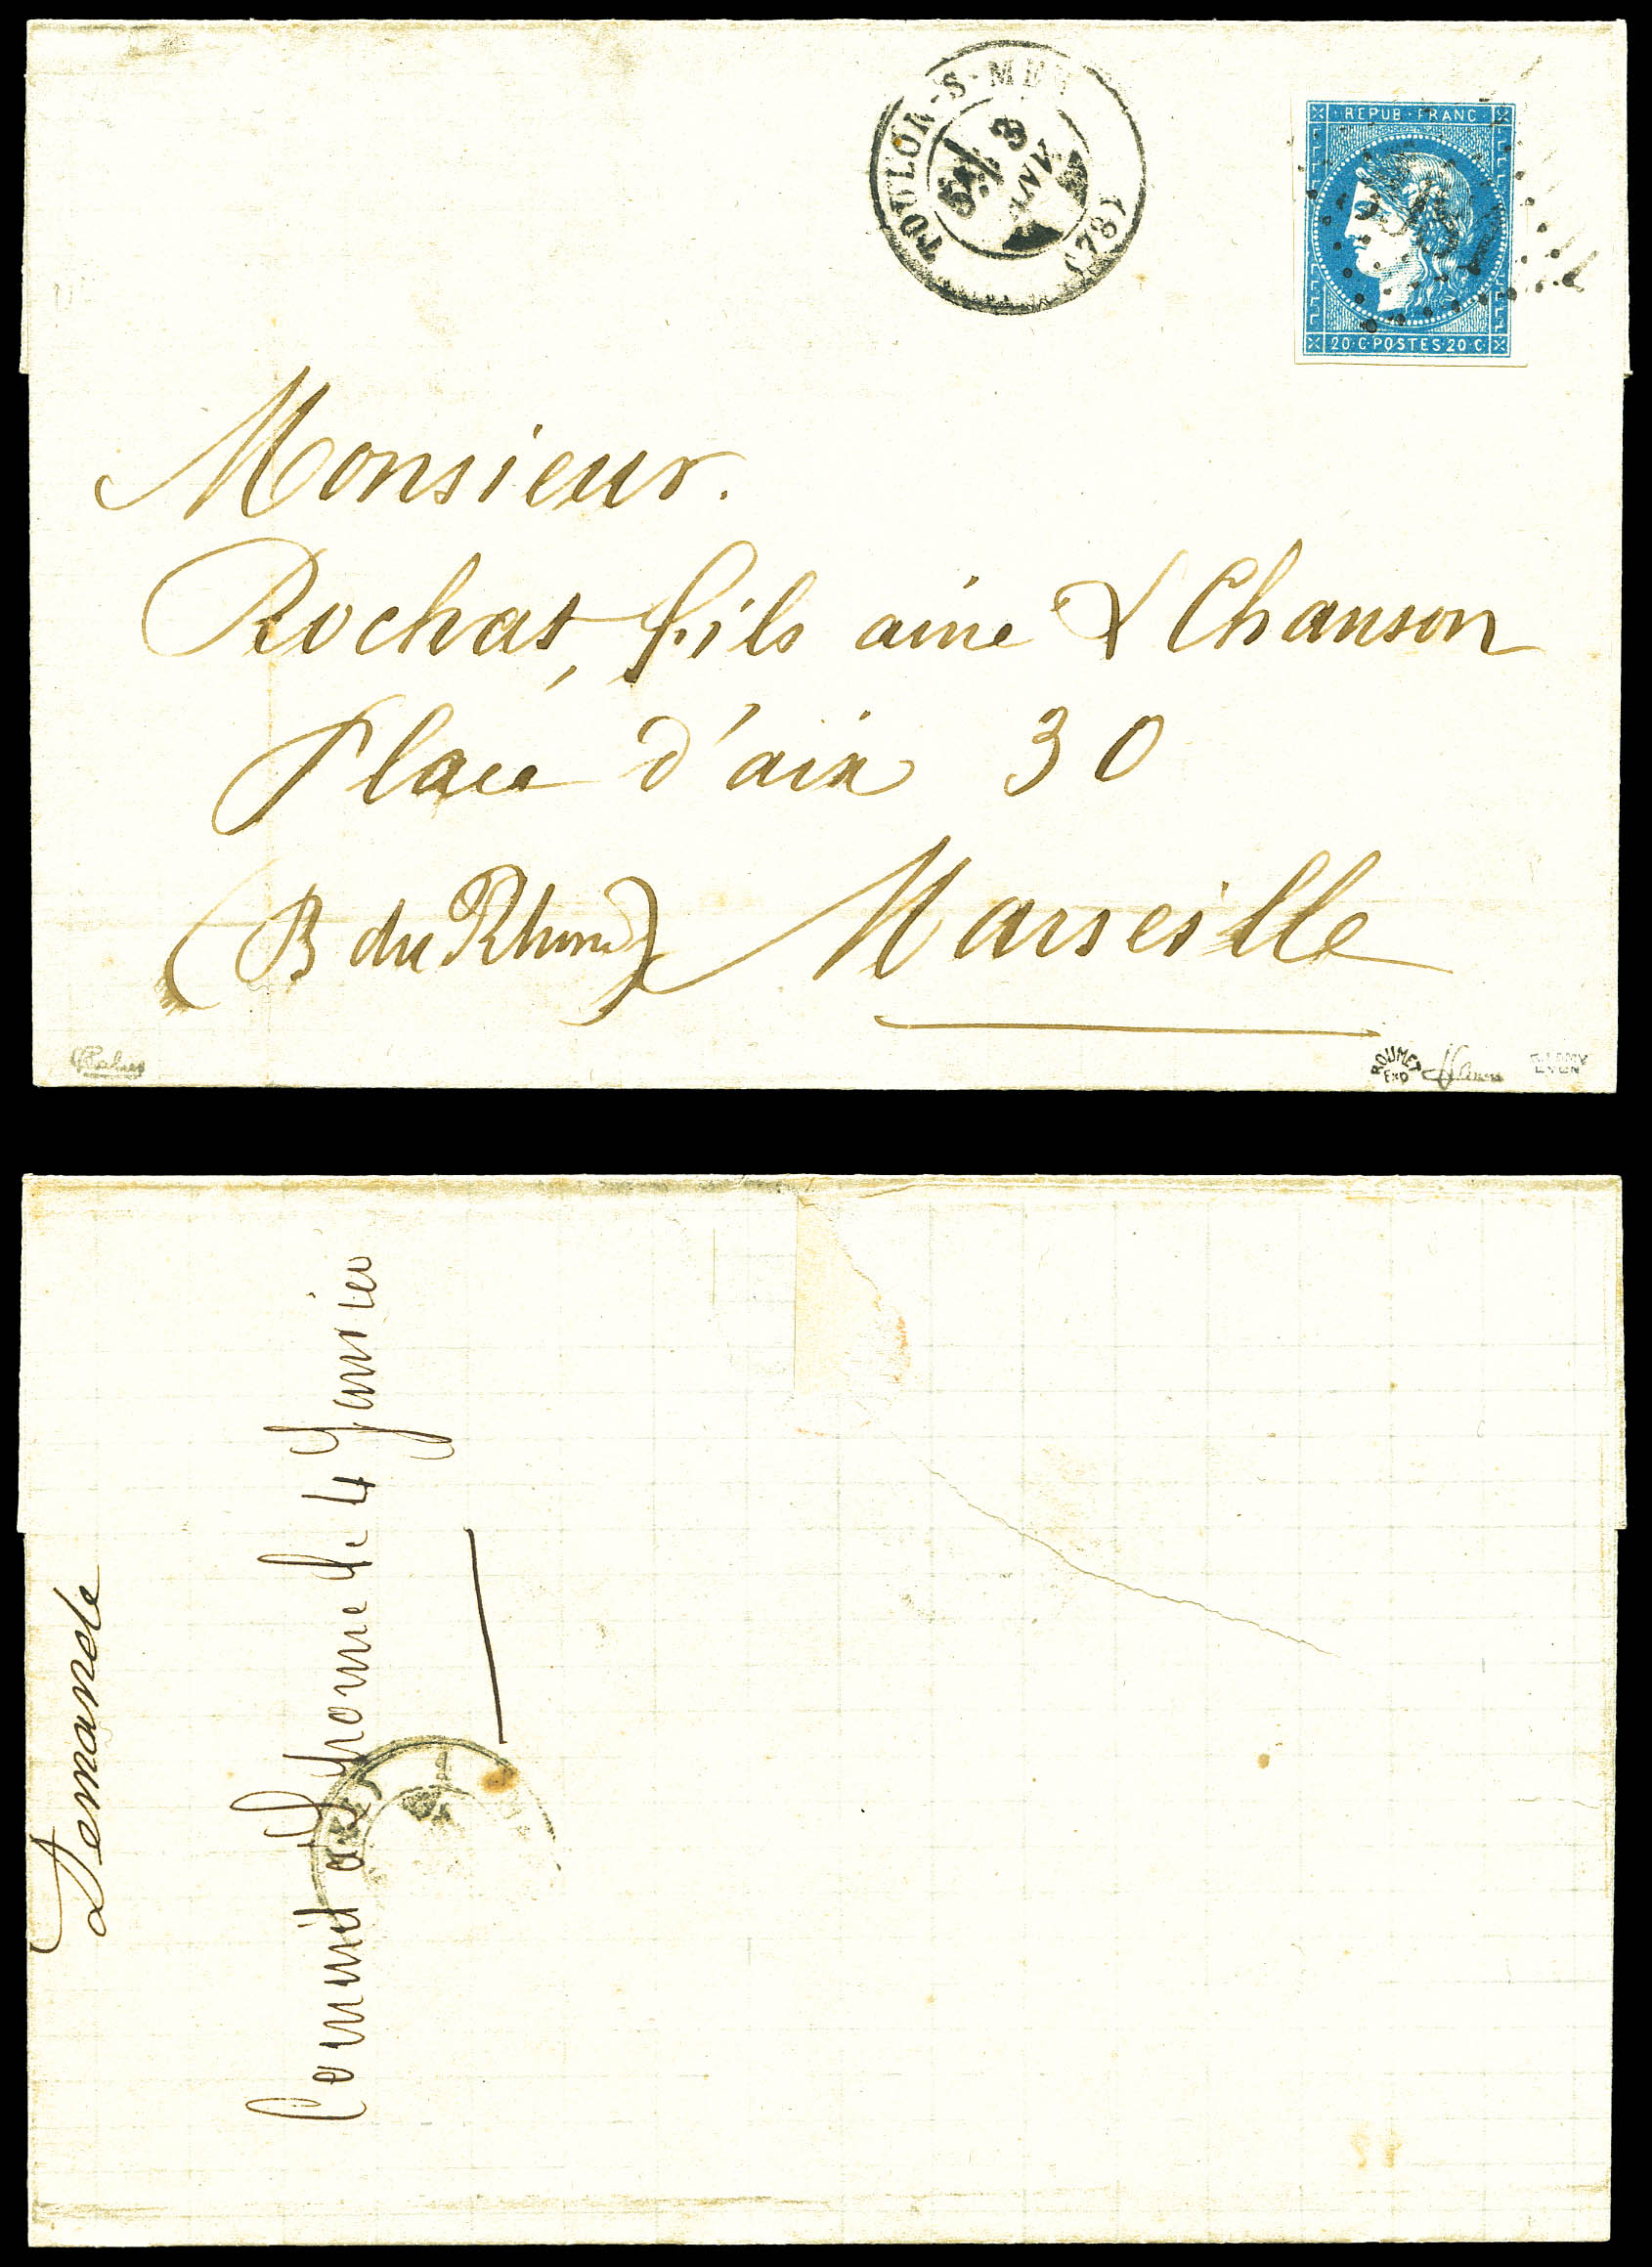 TOULON-S-MER
5E/
3
JANV.
(78)
REPUB·FRANC·
20·C·POSTES·20·C·
Monsieur.
Rochas, fils aine & Chanson
Place d'aix 30
(B du Rhone) Marseille
ROUMET
EXP
Demande
4 Janvier